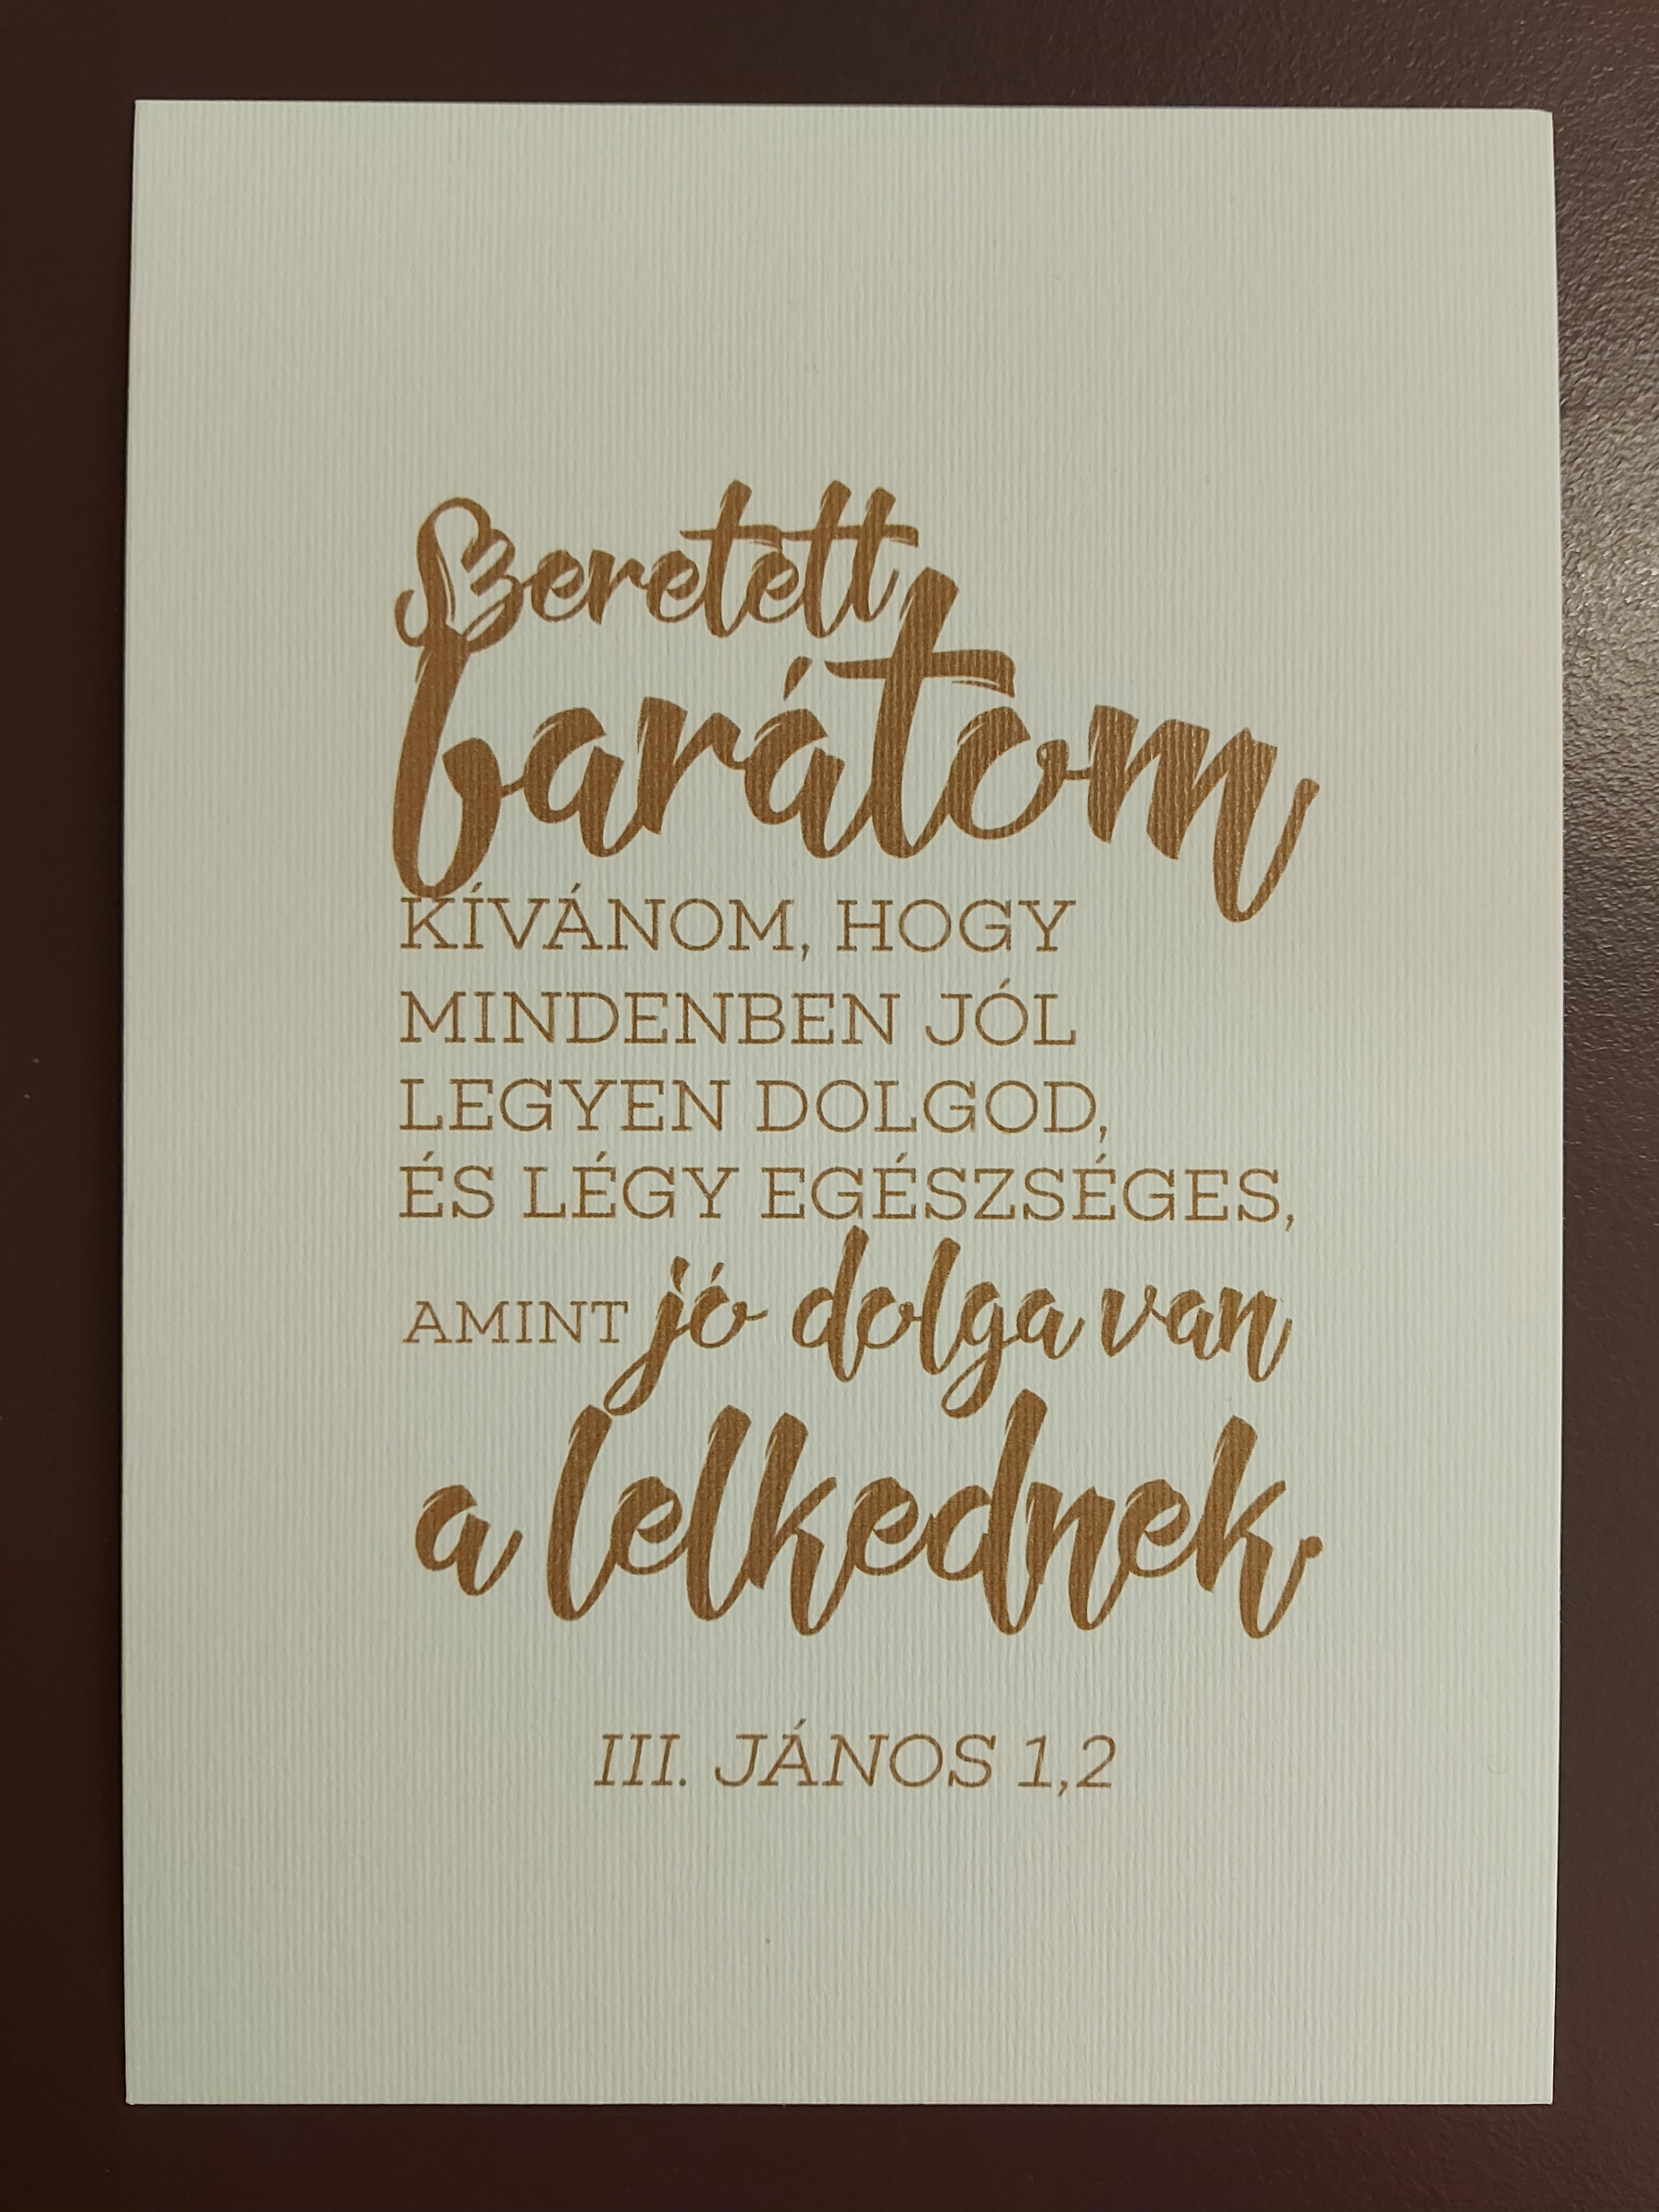 Szeretett
barátom
KÍVÁNOM, HOGY
MINDENBEN JÓL
LEGYEN DOLGOD,
ÉS LÉGY EGÉSZSÉGES,
AMINT jó dolga van
a lelkednek.
III. JÁNOS 1,2